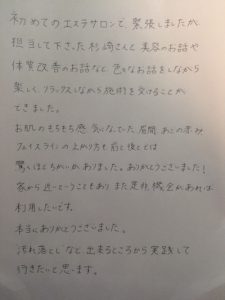 初めてのエステサロンで、緊張しましたが、
担当して下さった杉崎さんと美容のお話や
体質改善のお話など、色々なお話をしながら
楽しく、リラックスしながら施術を受けることが
できました。
お肌のもちもち感、気になっていた眉間、あごの赤み
フェイスラインの上がり方も前と後とでは
驚くほどちがいがありました。ありがとうございました!
家から近いということもあり、また是非機会があれば
利用したいです。
本当にありがとうございました。
"汚れ落とし"など、出来るところから実践して
行きたいと思います。